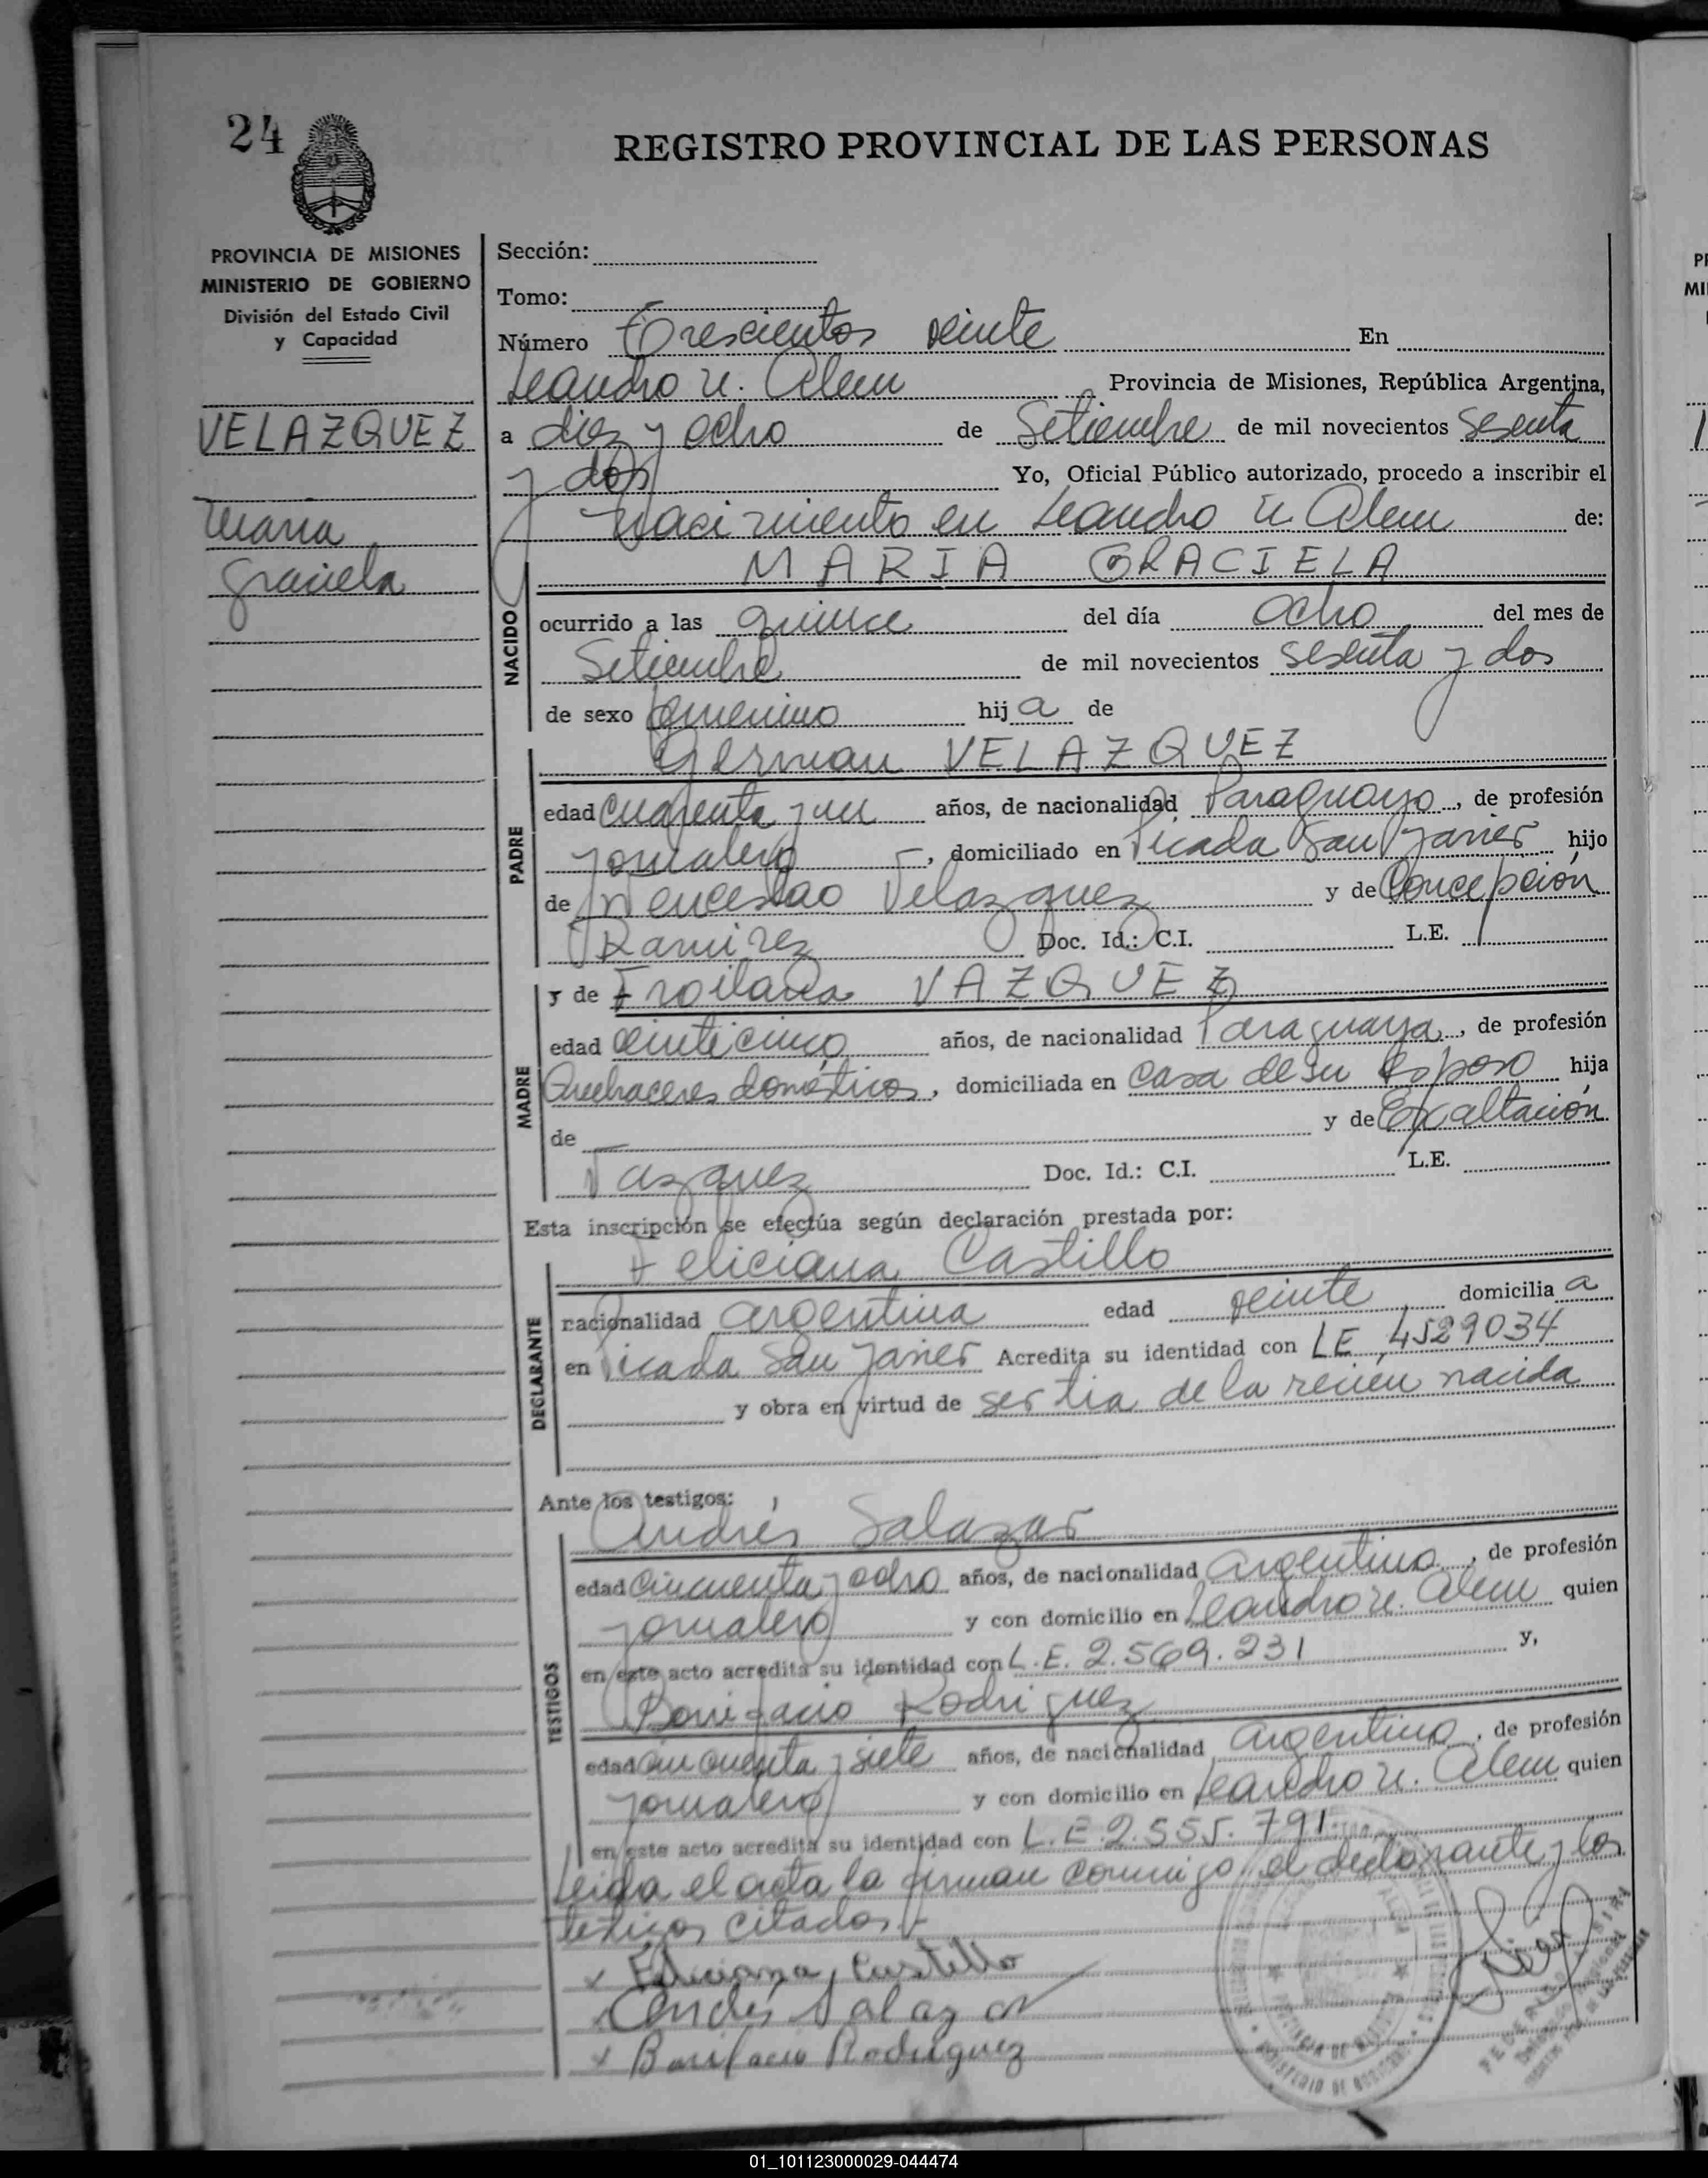 24
REGISTRO PROVINCIAL DE LAS PERSONAS
PROVINCIA DE MISIONES
MINISTERIO DE GOBIERNO
División del Estado Civil
y Capacidad
VELAZQUEZ
Maria
Graciela
Sección:
Tomo:
Número Trescientos veinte En
Leandro N. Alem Provincia de Misiones, República Argentina,
a diez y ocho de Setiembre de mil novecientos sesenta
y dos Yo, Oficial Público autorizado, procedo a inscribir el
Nacimiento en Leandro N. Alem de:
MARIA GRACIELA
NACIDO
ocurrido a las quince del día ocho del mes de
Setiembre de mil novecientos sesenta y dos
de sexo femenino hija de
German VELAZQUEZ
PADRE
edad cuarenta y un años, de nacionalidad Paraguayo, de profesión
jornalero, domiciliado en Picada San Javier hijo
de Wenceslao Velazquez y de Concepción
Ramirez Doc. Id.: C.I. L.E.
y de Froilana VAZQUEZ
MADRE
edad veinticinco años, de nacionalidad Paraguaya, de profesión
Quehaceres domésticos, domiciliada en casa de su Esposo hija
de — y de Exaltación
Vazquez Doc. Id.: C.I. L.E.
Esta inscripción se efectúa según declaración prestada por:
Feliciana Castillo
DECLARANTE
nacionalidad argentina edad veinte domicilia a
en Picada San Javier Acredita su identidad con LE, 4529034
y obra en virtud de ser tia de la recien nacida
Ante los testigos:
Andrés Salazar
TESTIGOS
edad cincuenta y ocho años, de nacionalidad argentino, de profesión
jornalero y con domicilio en Leandro N. Alem quien
en este acto acredita su identidad con L.E. 2.569.231 y,
Bonifacio Rodriguez
edad cincuenta y siete años, de nacionalidad argentino, de profesión
jornalero y con domicilio en Leandro N. Alem quien
en este acto acredita su identidad con L.E. 2.555.791.
Leida el acta la firman conmigo el declarante y los
testigos citados
x Feliciana Castillo
x Andrés Salazar
x Bonifacio Rodriguez
01_101123000029-044474